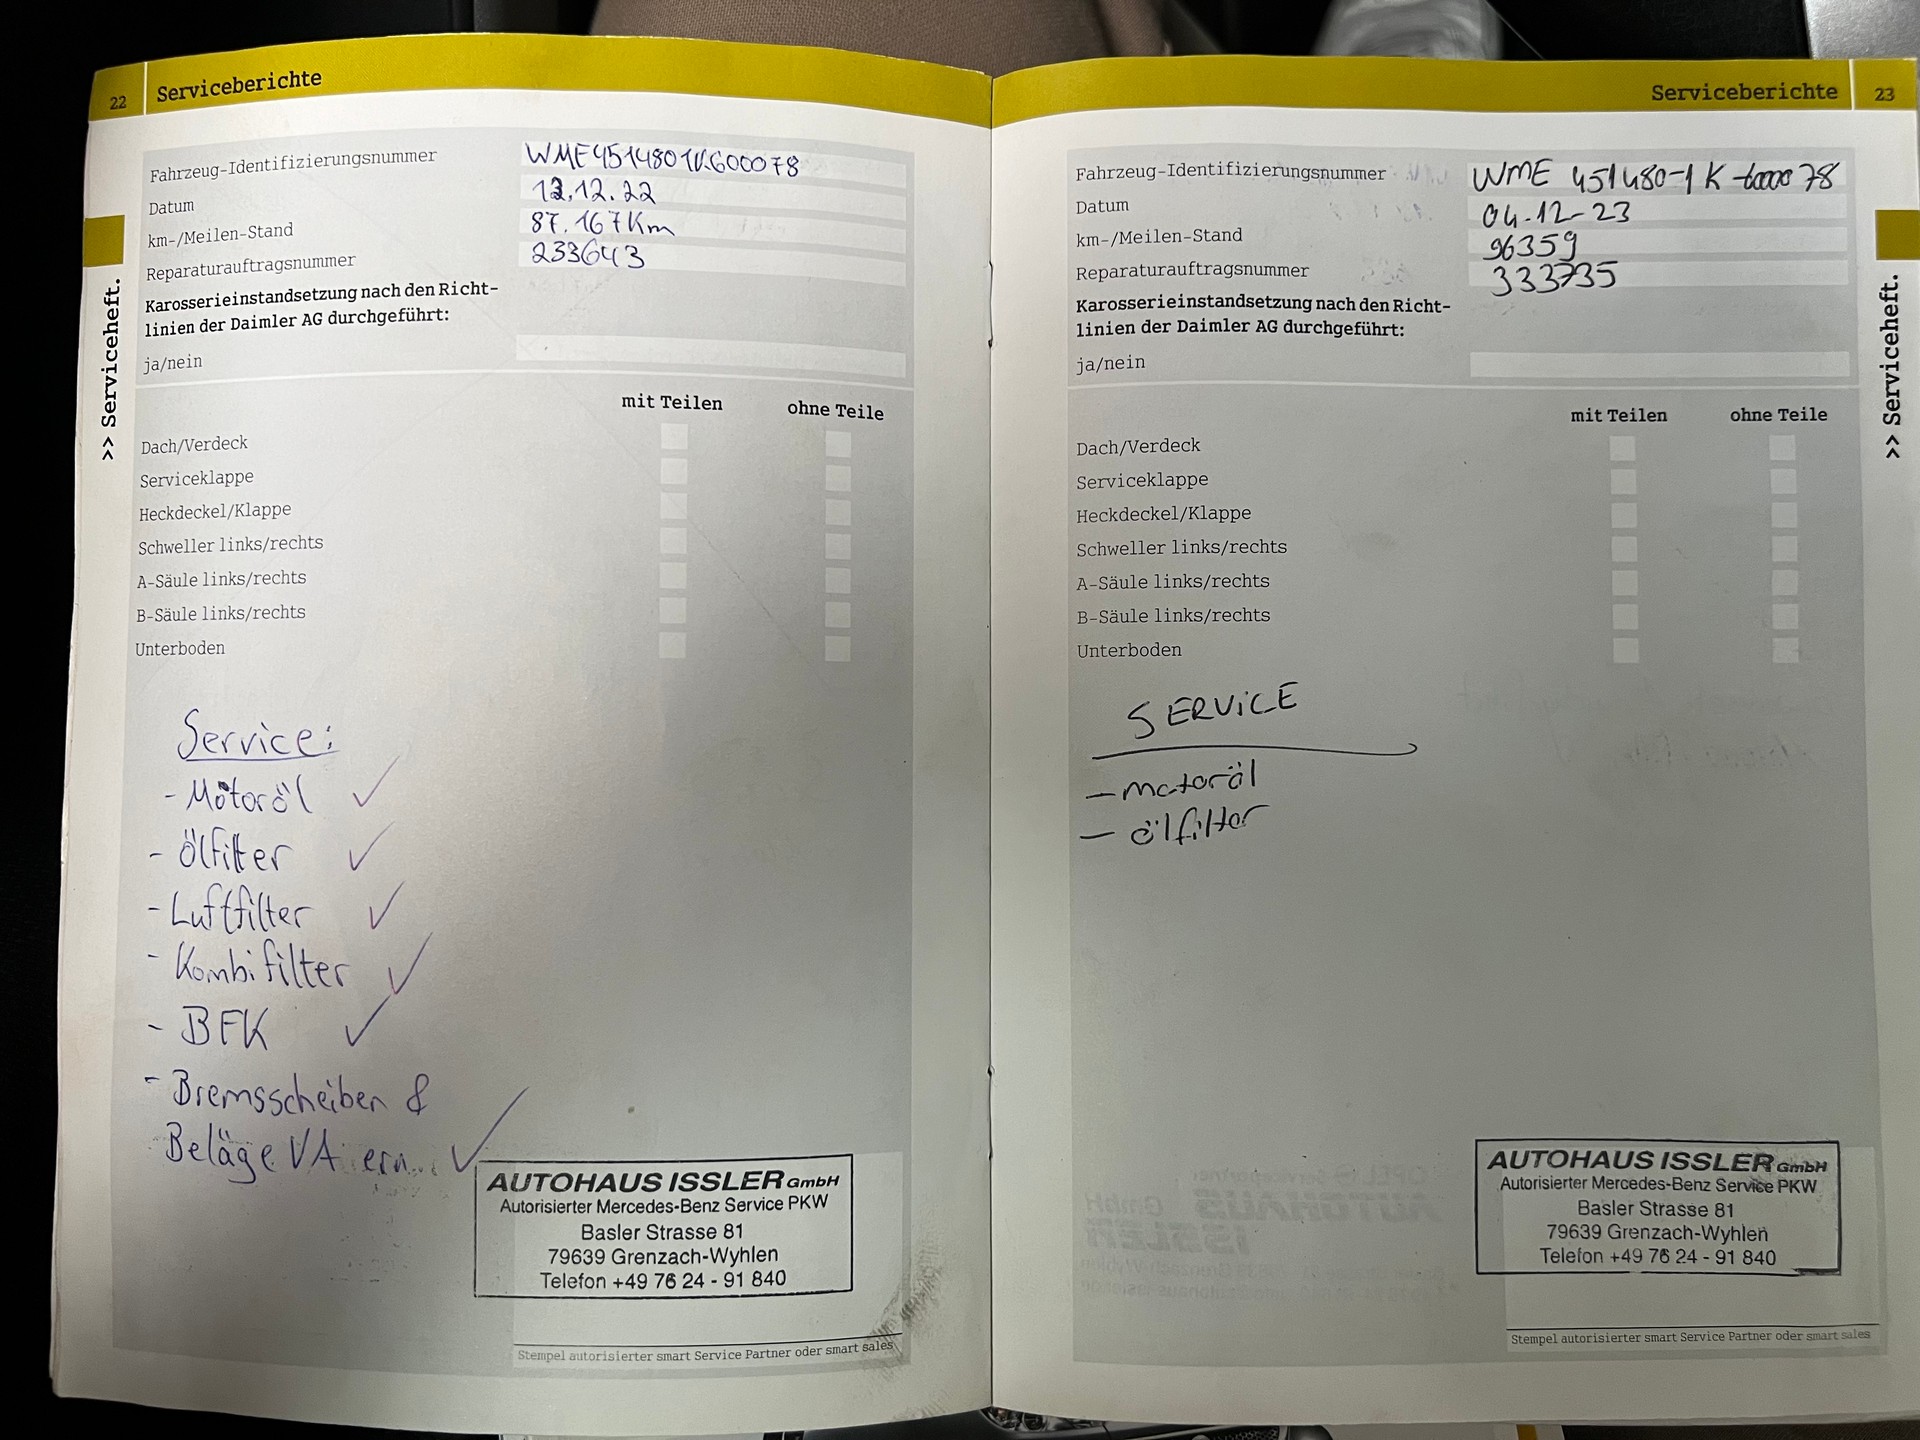 22 Serviceberichte
Fahrzeug-Identifizierungsnummer WME4514801K600078
Datum 12.12.22
km-/Meilen-Stand 87.167Km
Reparaturauftragsnummer 233643
Karosserieinstandsetzung nach den Richt-
linien der Daimler AG durchgeführt:
ja/nein
mit Teilen ohne Teile
Dach/Verdeck
Serviceklappe
Heckdeckel/Klappe
Schweller links/rechts
A-Säule links/rechts
B-Säule links/rechts
Unterboden
Service:
- Motoröl ✓
- Ölfilter ✓
- Luftfilter ✓
- Kombifilter ✓
- BFK ✓
- Bremsscheiben &
Beläge VA ern. ✓
AUTOHAUS ISSLER GmbH
Autorisierter Mercedes-Benz Service PKW
Basler Strasse 81
79639 Grenzach-Wyhlen
Telefon +49 76 24 - 91 840
Stempel autorisierter smart Service Partner oder smart sales
>> Serviceheft.
Serviceberichte 23
Fahrzeug-Identifizierungsnummer WME 451480-1 K 600078
Datum 04-12-23
km-/Meilen-Stand 96359
Reparaturauftragsnummer 333735
Karosserieinstandsetzung nach den Richt-
linien der Daimler AG durchgeführt:
ja/nein
mit Teilen ohne Teile
Dach/Verdeck
Serviceklappe
Heckdeckel/Klappe
Schweller links/rechts
A-Säule links/rechts
B-Säule links/rechts
Unterboden
SERVICE
- motoröl
- ölfilter
AUTOHAUS ISSLER GmbH
Autorisierter Mercedes-Benz Service PKW
Basler Strasse 81
79639 Grenzach-Wyhlen
Telefon +49 76 24 - 91 840
Stempel autorisierter smart Service Partner oder smart sales
>> Serviceheft.